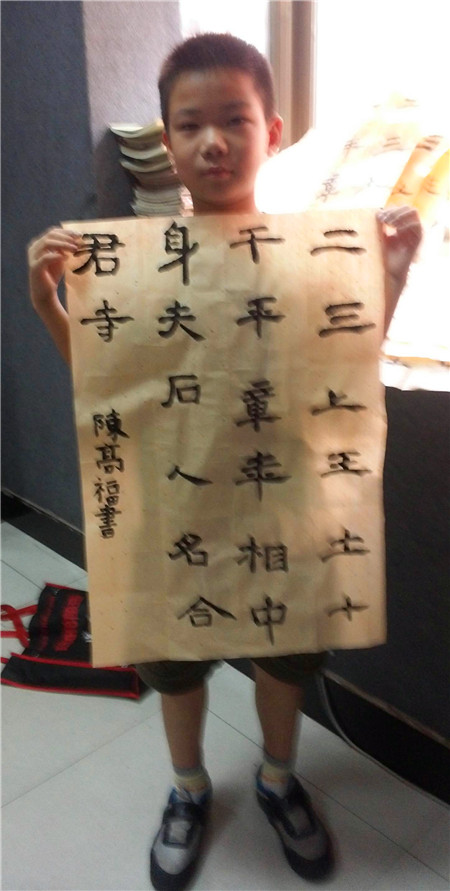 二三上王土十
干平章年相中
身夫石人名合
君寺
陳高福書